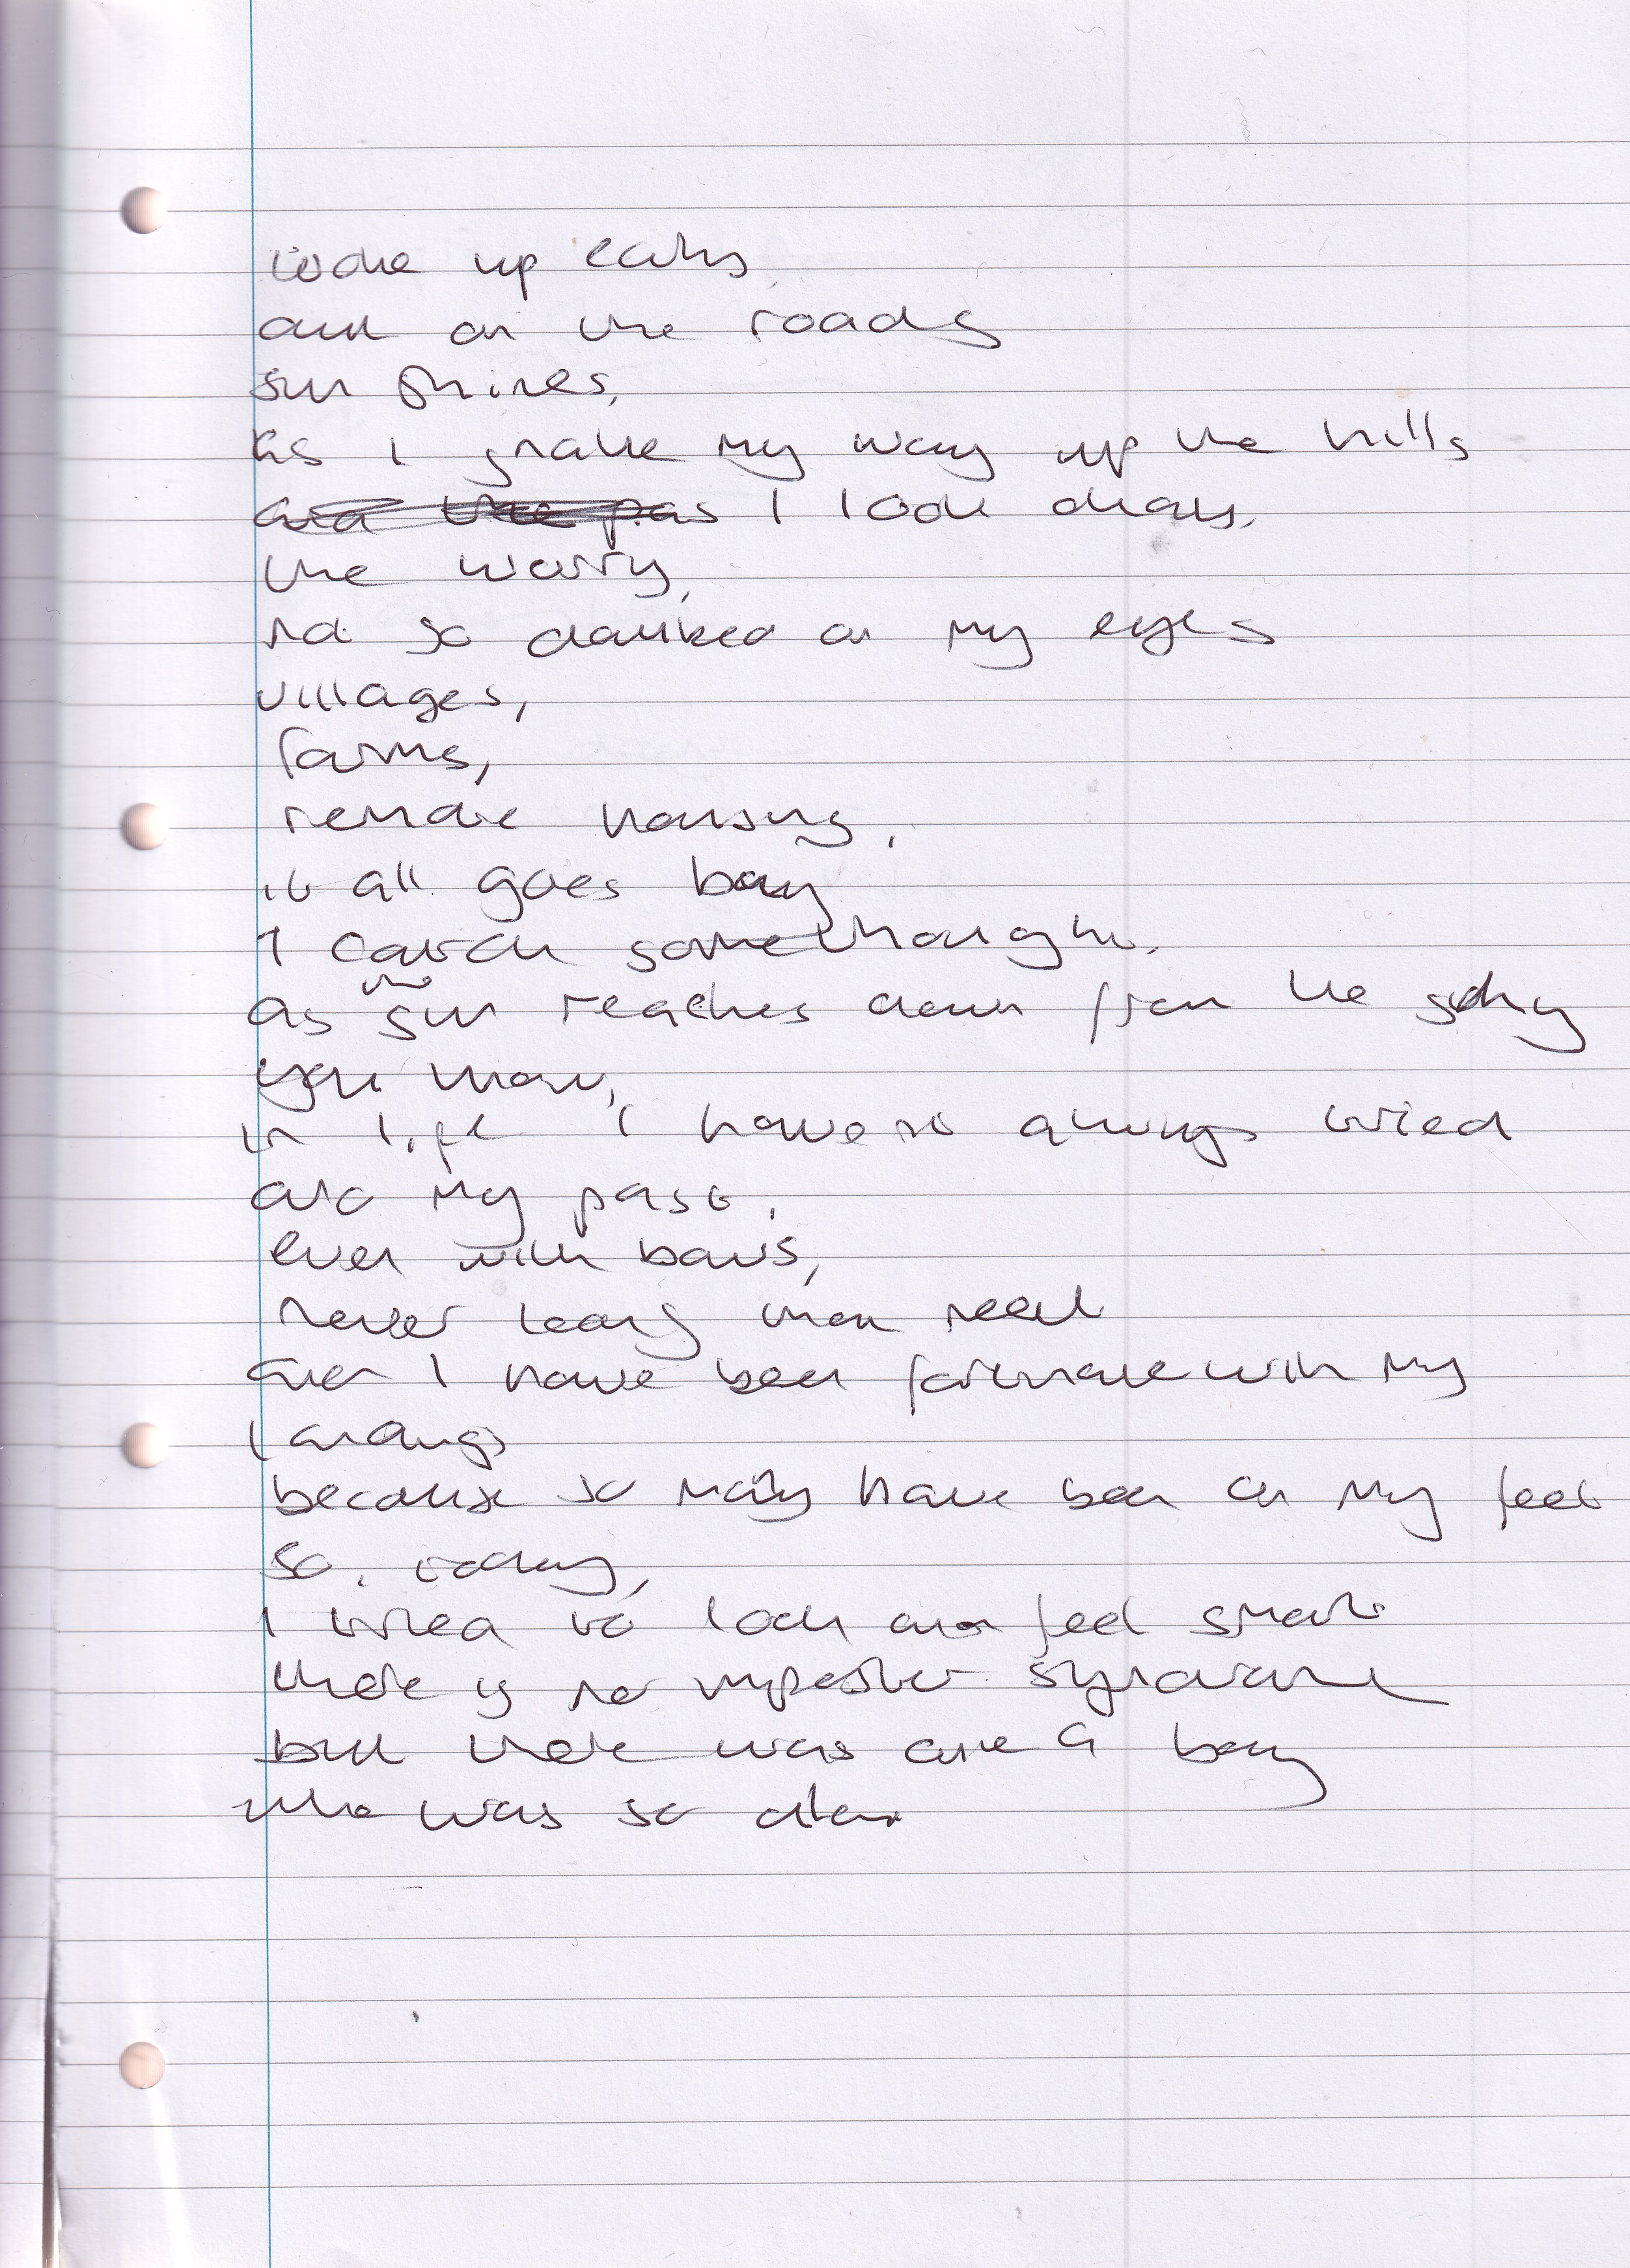 woke up early
out on the roads
sun shines,
as I snake my way up the hills
I look okay,
the worry,
not so doubled on my eyes
villages,
farms,
remote housing,
it all goes by
I catch some thought,
as the sun reaches down from the sky
you know,
in life I have not always tried
and my past,
even with bows,
never really been neat
over I have been fortunate with my
landings
because so many have been on my feet
so, today,
I tried to look and feel smart
there is no imposter syndrome
but there was once a boy
who was so